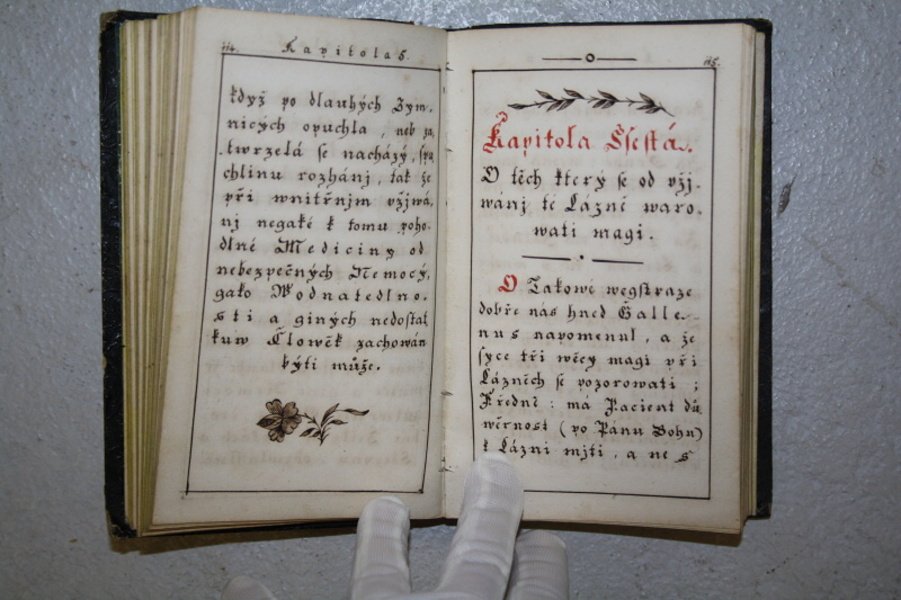 114. Kapitola 5.
když po dlauhých Zym,
nicých opuchla, neb za,
twrzelá se nacházý, spu
chlinu rozhánj, tak že
při wnitřnjm vžjwá,
nj negaké k tomu poho,
dlné Mediciny od
nebezpečných Nemocý,
gako Wodnatedlno,
sti a giných nedostat
kuw Člowěk zachowán
býti může.
115.
Kapitola Ssestá.
O těch který se od vžj,
wánj té Lázně waro,
wati magi.
O Takowé wegstraze
dobře nás hned Galle,
nus napomenul, a že
syce tři wěcy magi při
Lázněch se pozorowati;
Předně: má Pacient dů,
wěrnost (po Pánu Bohu)
k Lázni mjti, a ne s